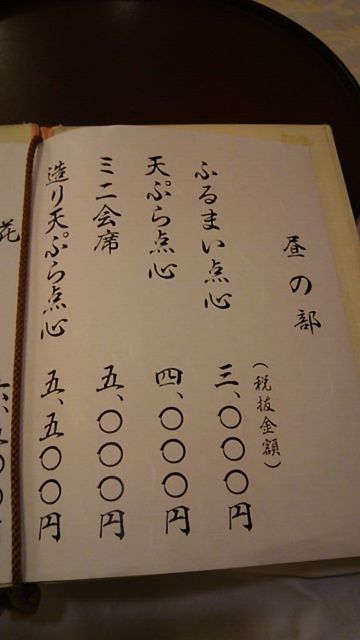 昼の部
(税抜金額)
ふるまい点心 三、〇〇〇円
天ぷら点心 四、〇〇〇円
ミニ会席 五、〇〇〇円
造り天ぷら点心 五、五〇〇円
花